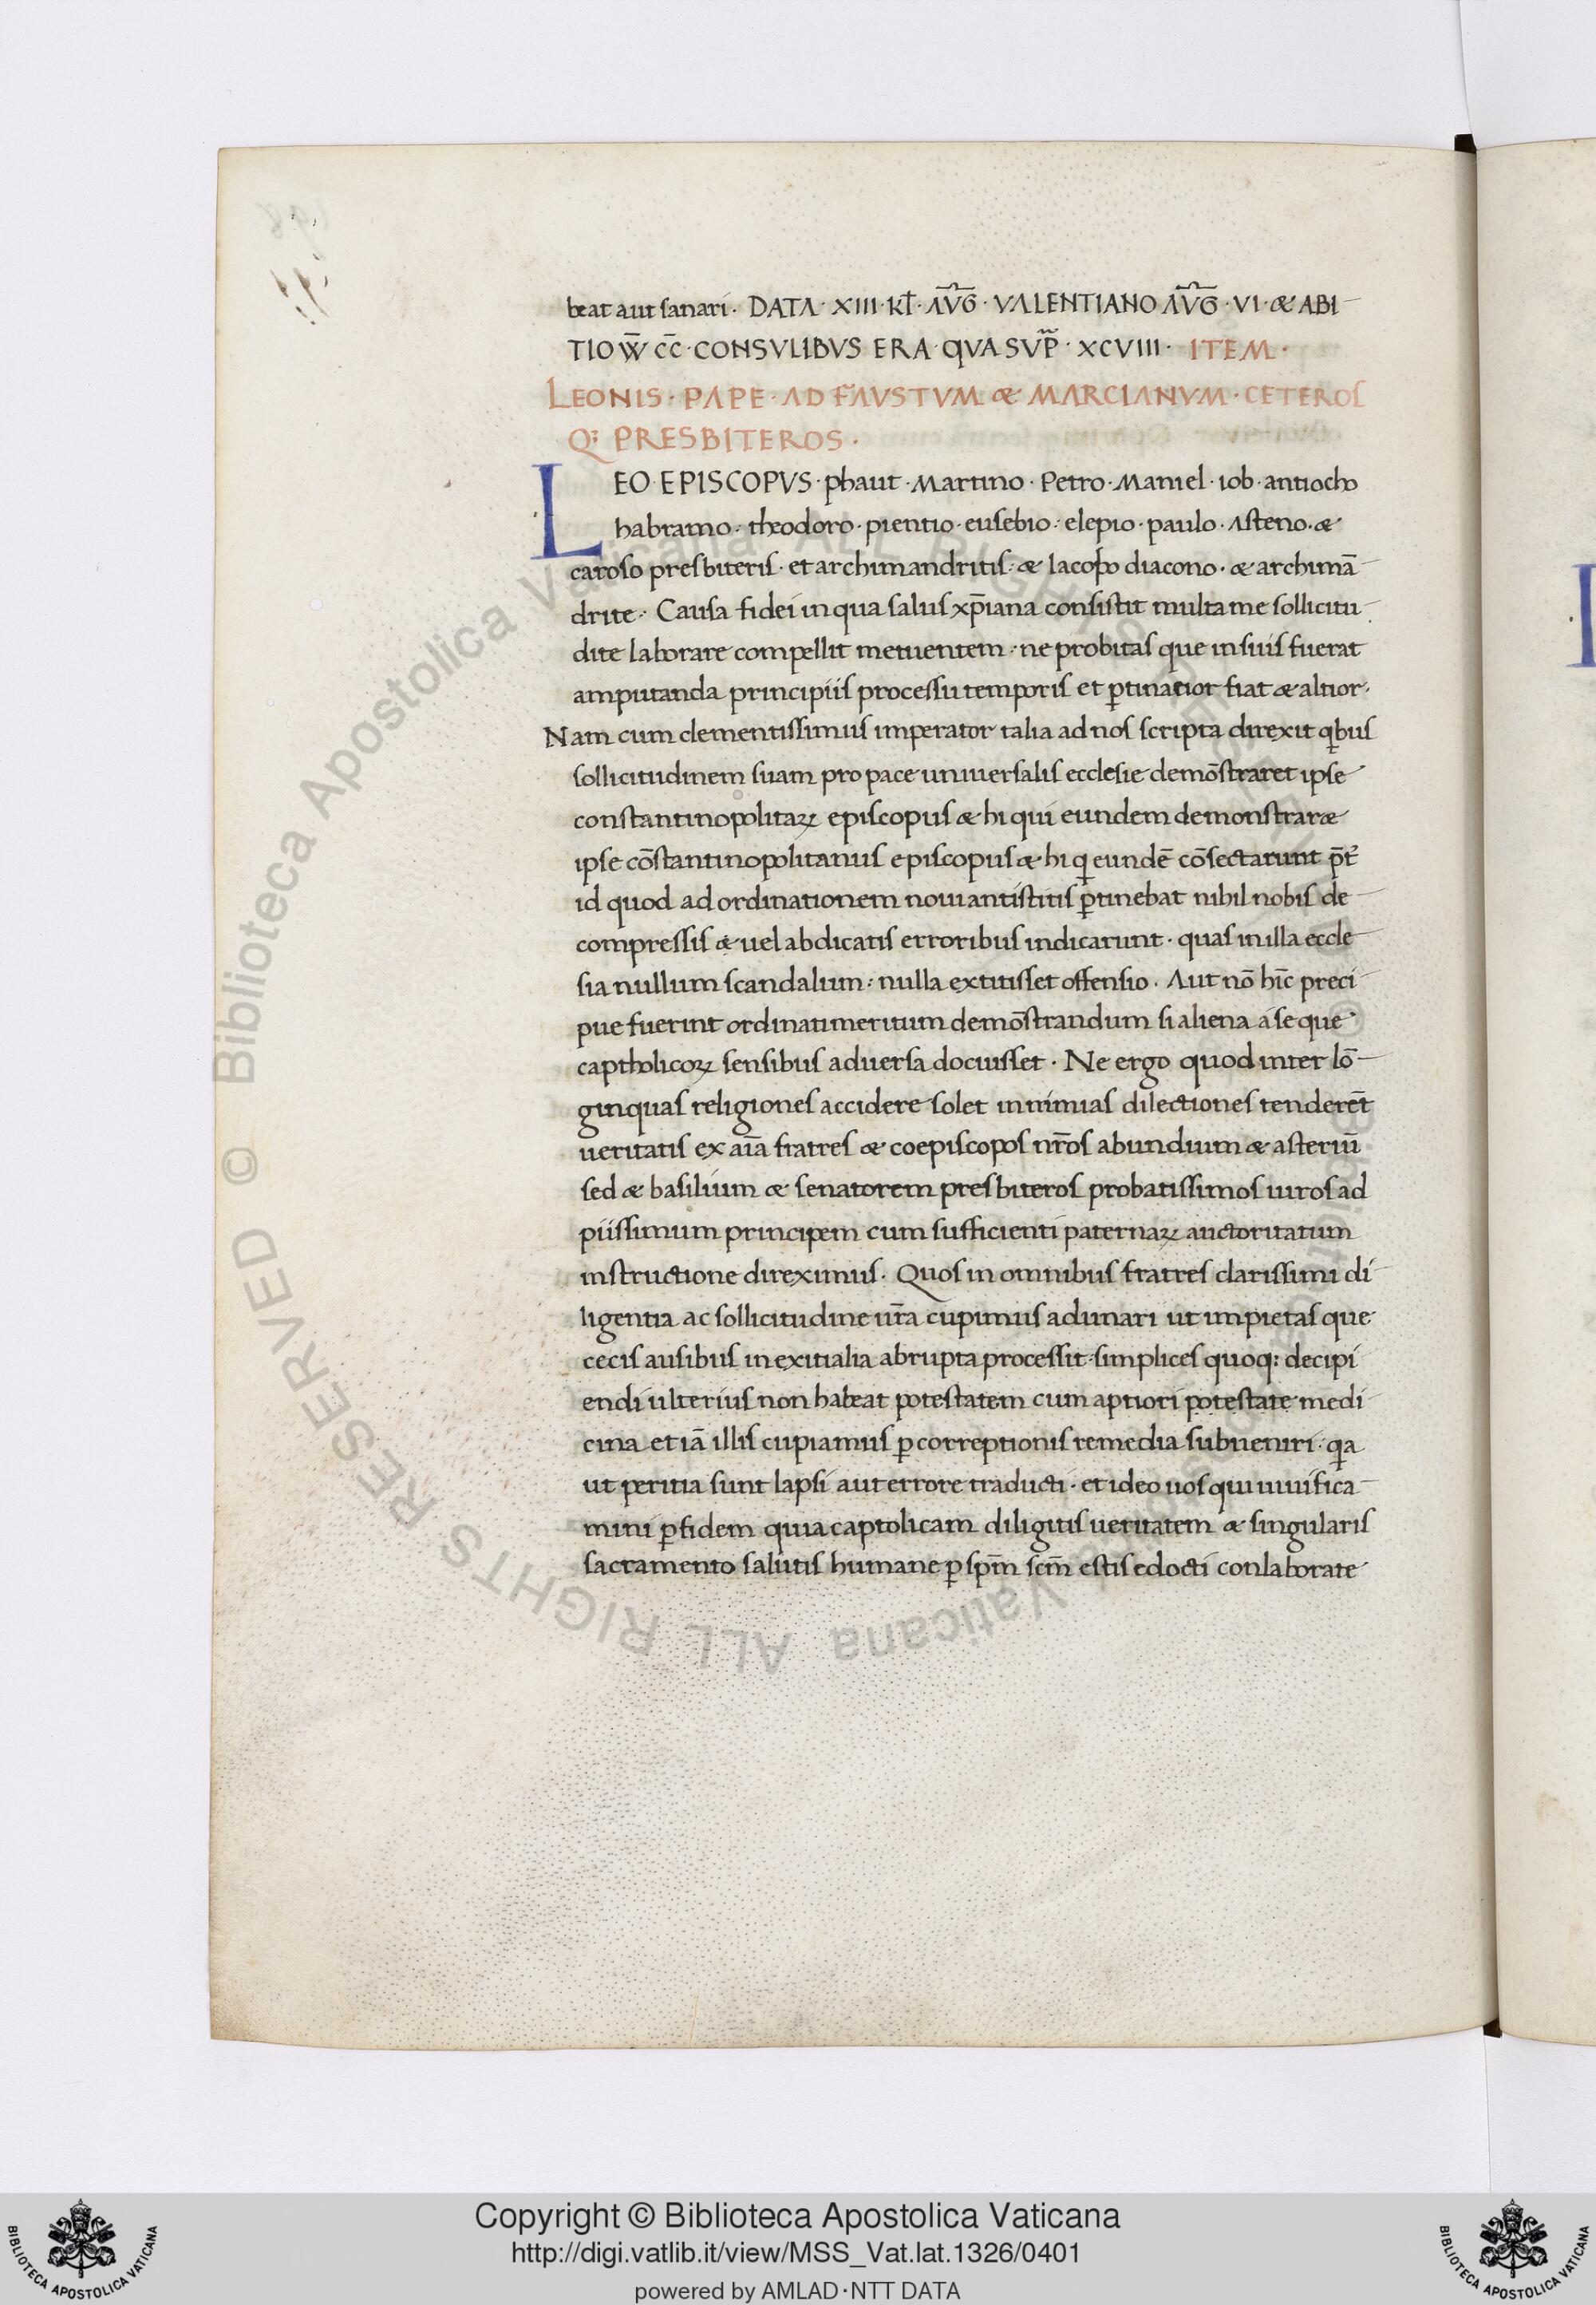 beat aut sanari · DATA · XIII · KL̄ · AVḠ · VALENTIANO AVḠ · VI · & ABI
TIO W̄ C̄C̄ · CONSVLIBVS ERA QVA SVP̄ · XCVIII · ITEM ·
LEONIS · PAPE · AD FAVSTVM & MARCIANVM · CETEROS
Q: PRESBITEROS ·
LEO EPISCOPVS · phaut · Martino · Petro · Maniel · iob · antiocho
habramo : theodoro · pientio · eusebio : elepio · paulo · Asteno · &
caroso presbiteris · et archimandritis : & Iacopo diacono · & archimā
drite · Causa fidei in qua salus xp̄iana consistit multa me sollicitu
dite laborare compellit metuentem · ne probitas que in suis fuerat
amputanda principiis processu temporis et ꝑtinatior fiat & altior ·
Nam cum clementissimus imperator talia ad nos scripta direxit qibus
sollicitudinem suam pro pace uniuersalis ecclesie demōstraret ipse
constantinopolitaꝝ episcopus & hi qui eundem demonstrar&
ipse cōstantinopolitanus episcopus & hi qi eundē cōsectarunt p̄t
id quod ad ordinationem noui antistitis ꝑtinebat nihil nobis de
compressis & uel abdicatis erroribus indicarunt · quas in illa eccle
sia nullum scandalum : nulla extitisset offensio · Aut nō hīc preci
pue fuerint ordinati meritum demōstrandum si aliena a se que
captholicoꝝ sensibus aduersa docuisset · Ne ergo quod inter lō
ginquas religiones accidere solet in nimias dilectiones tenderēt
ueritatis ex aīa fratres & coepiscopos nr̄os abundium & asteriū
sed & basilium & senatorem presbiteros probatissimos uiros ad
piissimum principem cum sufficienti paternaꝝ auctoritatum
instructione direximus · Quos in omnibus fratres clarissimi di
ligentia ac sollicitudine ur̄a cupimus adunari ut impietas que
cecis ausibus in exitialia abrupta processit · simplices quoq: decipi
endi ulterius non habeat potestatem cum aptiori potestate medi
cina et iā illis cupiamus ꝑ correptionis remedia subueniri · qia
ut peritia sunt lapsi aut errore traducti · et ideo uos qui uiuifica
mini ꝑ fidem quia captolicam diligitis ueritatem & singularis
sacramento salutis humane ꝑ spm̄ scm̄ estis edocti conlaborate
© Biblioteca Apostolica Vaticana ALL RIGHTS RESERVED
Copyright © Biblioteca Apostolica Vaticana
http://digi.vatlib.it/view/MSS_Vat.lat.1326/0401
powered by AMLAD·NTT DATA
BIBLIOTECA APOSTOLICA VATICANA
BIBLIOTECA APOSTOLICA VATICANA